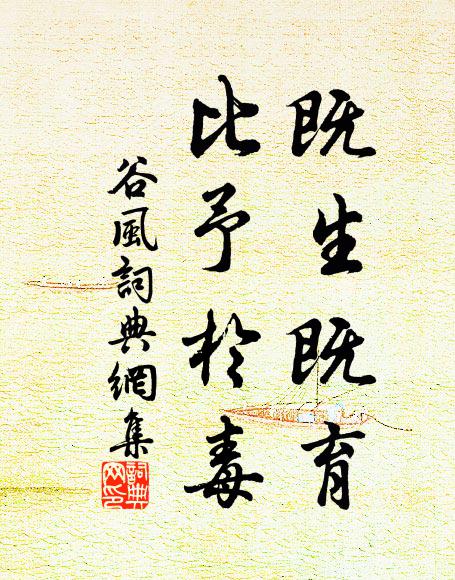 既生既育
比予於毒
谷風詞典網集
詞典
网印